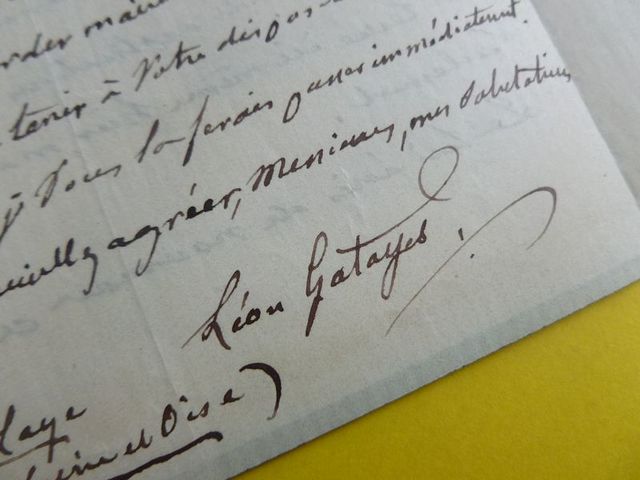 tenir à votre dispos
je vous la ferais passer immédiatement.
veuillez agréer, Messieurs, mes salutations
Léon Gatayes
Laye
Seine et Oise)